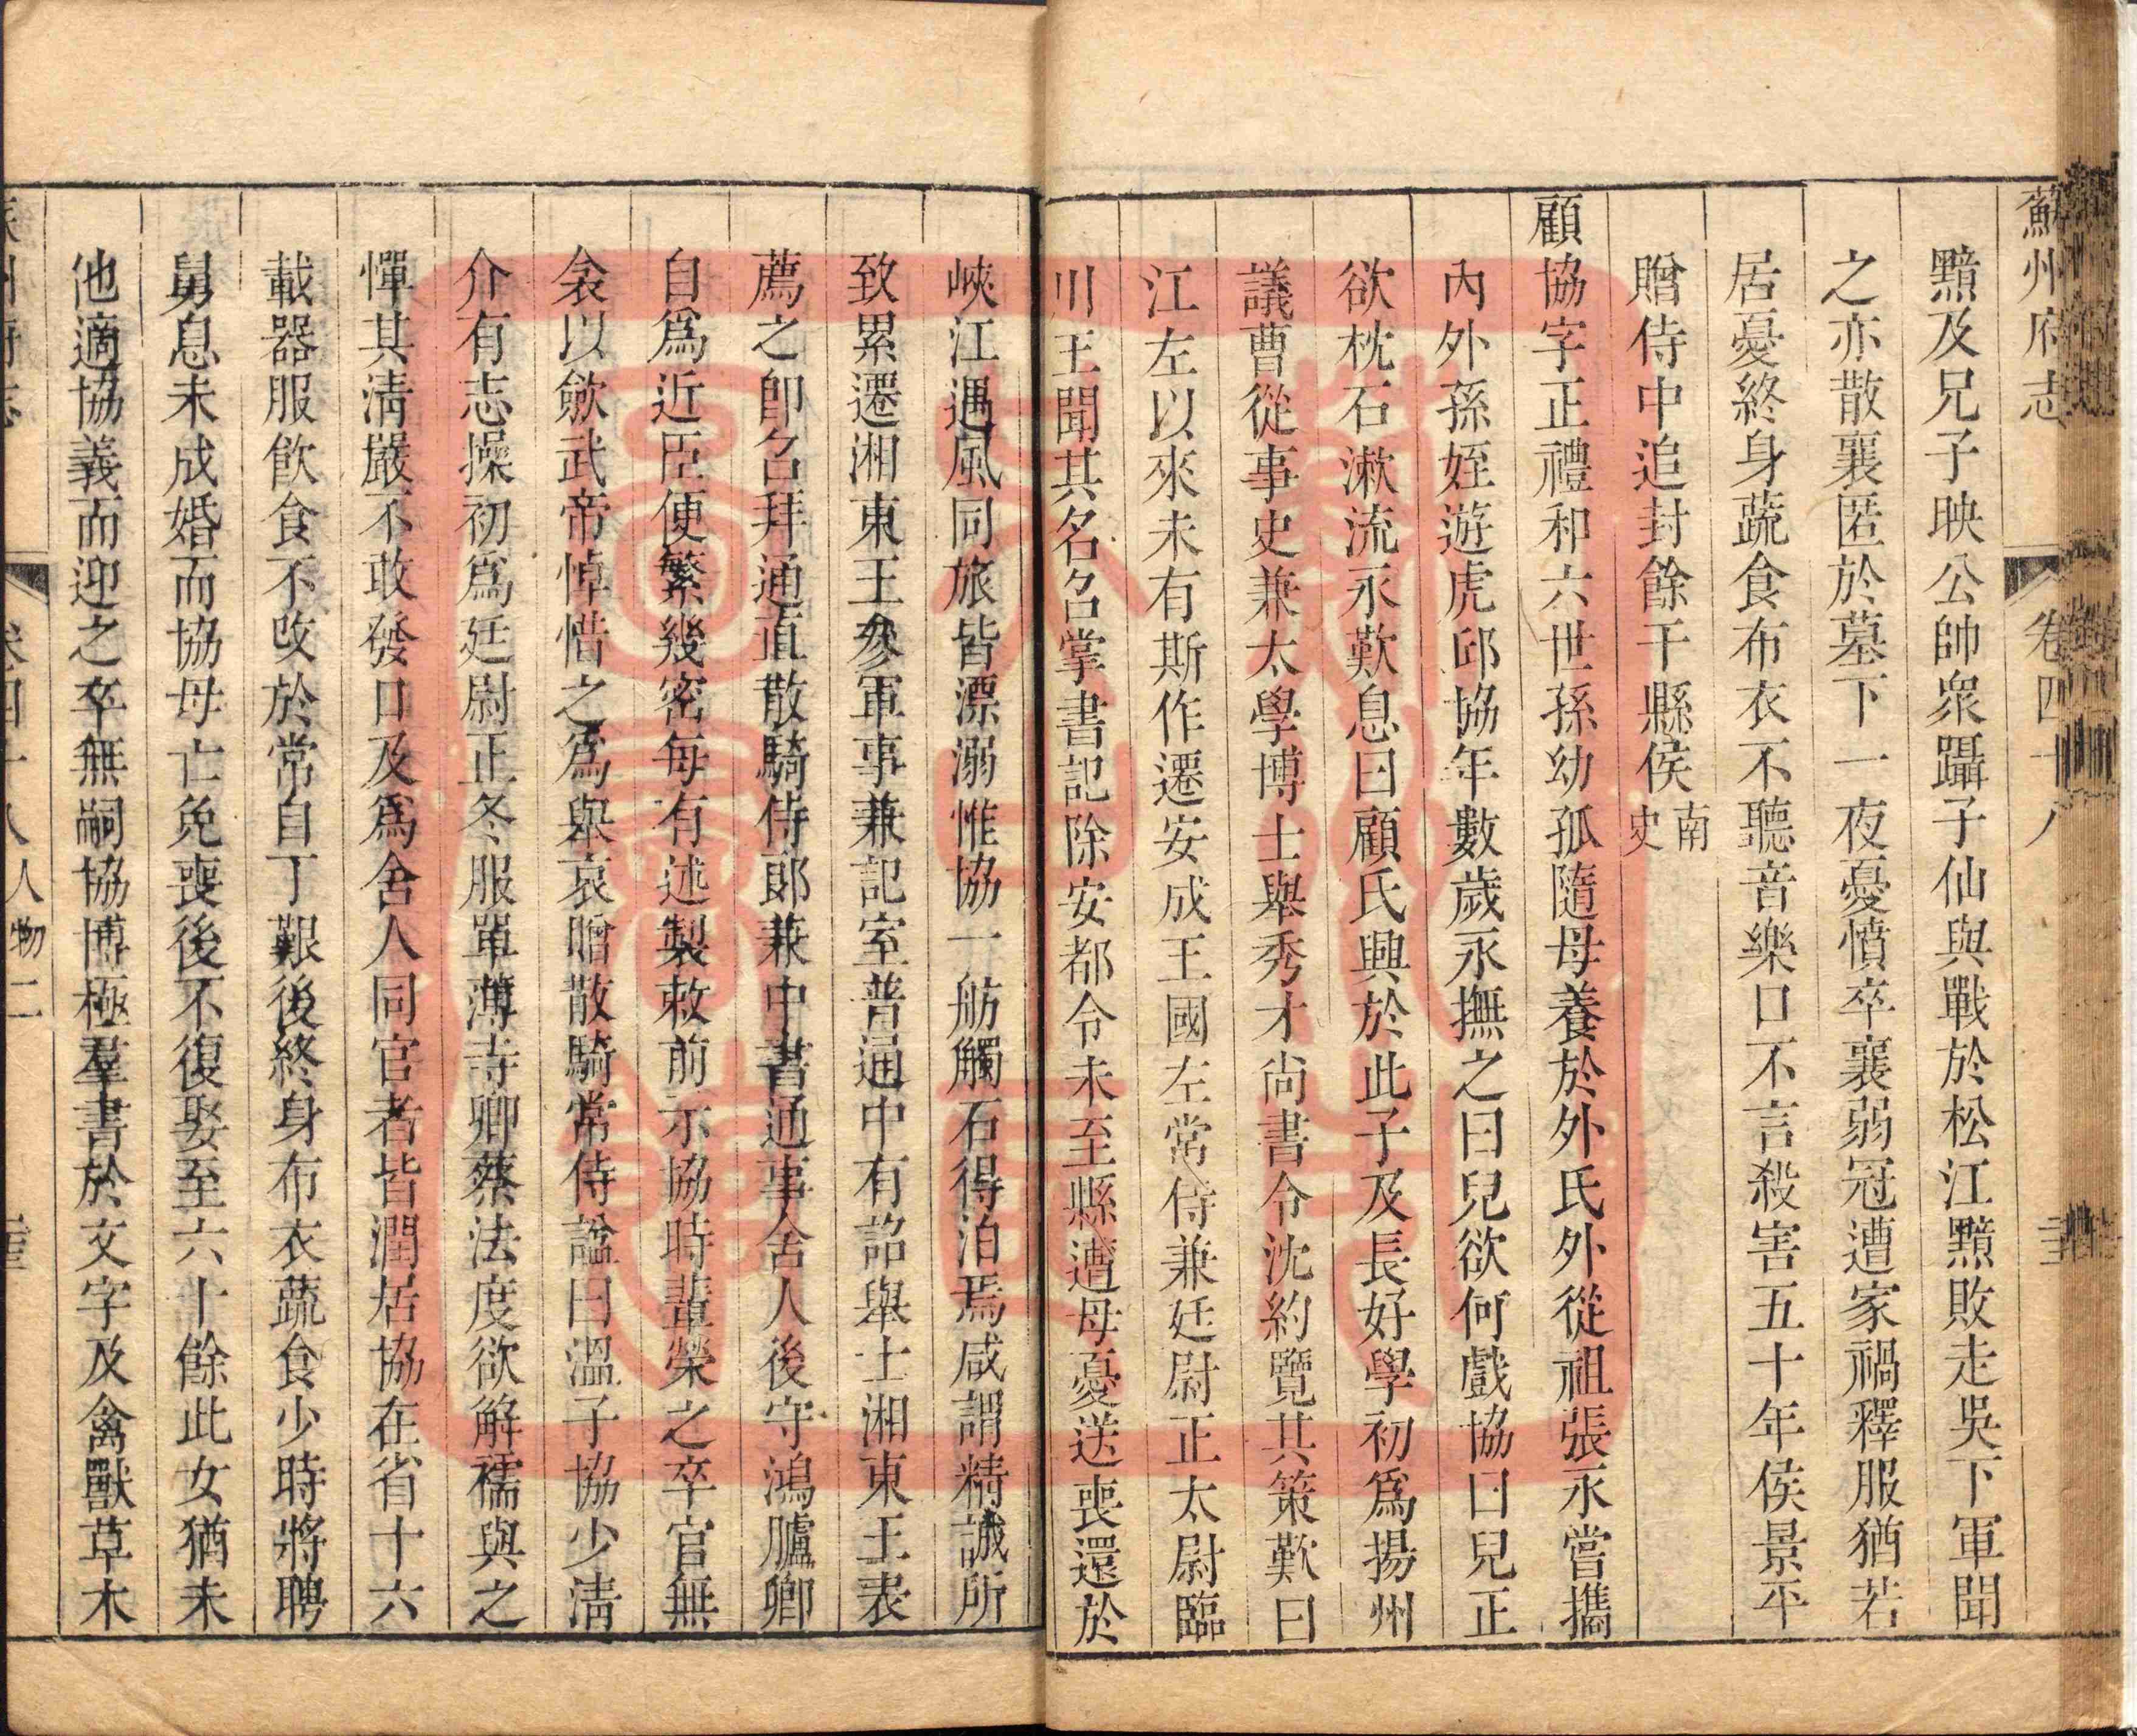 蘇州府志 卷四十八
黯及兄子映公帥衆躡子仙與戰於松江黯敗走吳下軍聞
之亦散襄匿於墓下一夜憂憤卒襄弱冠遭家禍釋服猶若
居憂終身蔬食布衣不聽音樂口不言殺害五十年侯景平
贈侍中追封餘干縣侯南史
顧協字正禮和六世孫幼孤隨母養於外氏外從祖張永嘗攜
內外孫姪遊虎邱協年數歲永撫之曰兒欲何戲協曰兒正
欲枕石漱流永歎息曰顧氏興於此子及長好學初爲揚州
議曹從事史兼太學博士舉秀才尚書令沈約覽其策歎曰
江左以來未有斯作遷安成王國左常侍兼廷尉正太尉臨
川王聞其名召掌書記除安都令未至縣遭母憂送喪還於
峽江遇風同旅皆漂溺惟協一舫觸石得泊焉咸謂精誠所
致累遷湘東王參軍事兼記室普通中有詔舉士湘東王表
薦之卽召拜通直散騎侍郞兼中書通事舍人後守鴻臚卿
自爲近臣便繁幾密每有述製敕前示協時輩榮之卒官無
衾以斂武帝悼惜之爲舉哀贈散騎常侍諡曰溫子協少淸
介有志操初爲廷尉正冬服單薄寺卿蔡法度欲解襦與之
憚其淸嚴不敢發口及爲舍人同官者皆潤居協在省十六
載器服飮食不改於常自丁艱後終身布衣蔬食少時將聘
舅息未成婚而協母亡免喪後不復娶至六十餘此女猶未
他適協義而迎之卒無嗣協博極羣書於文字及禽獸草木
人物二